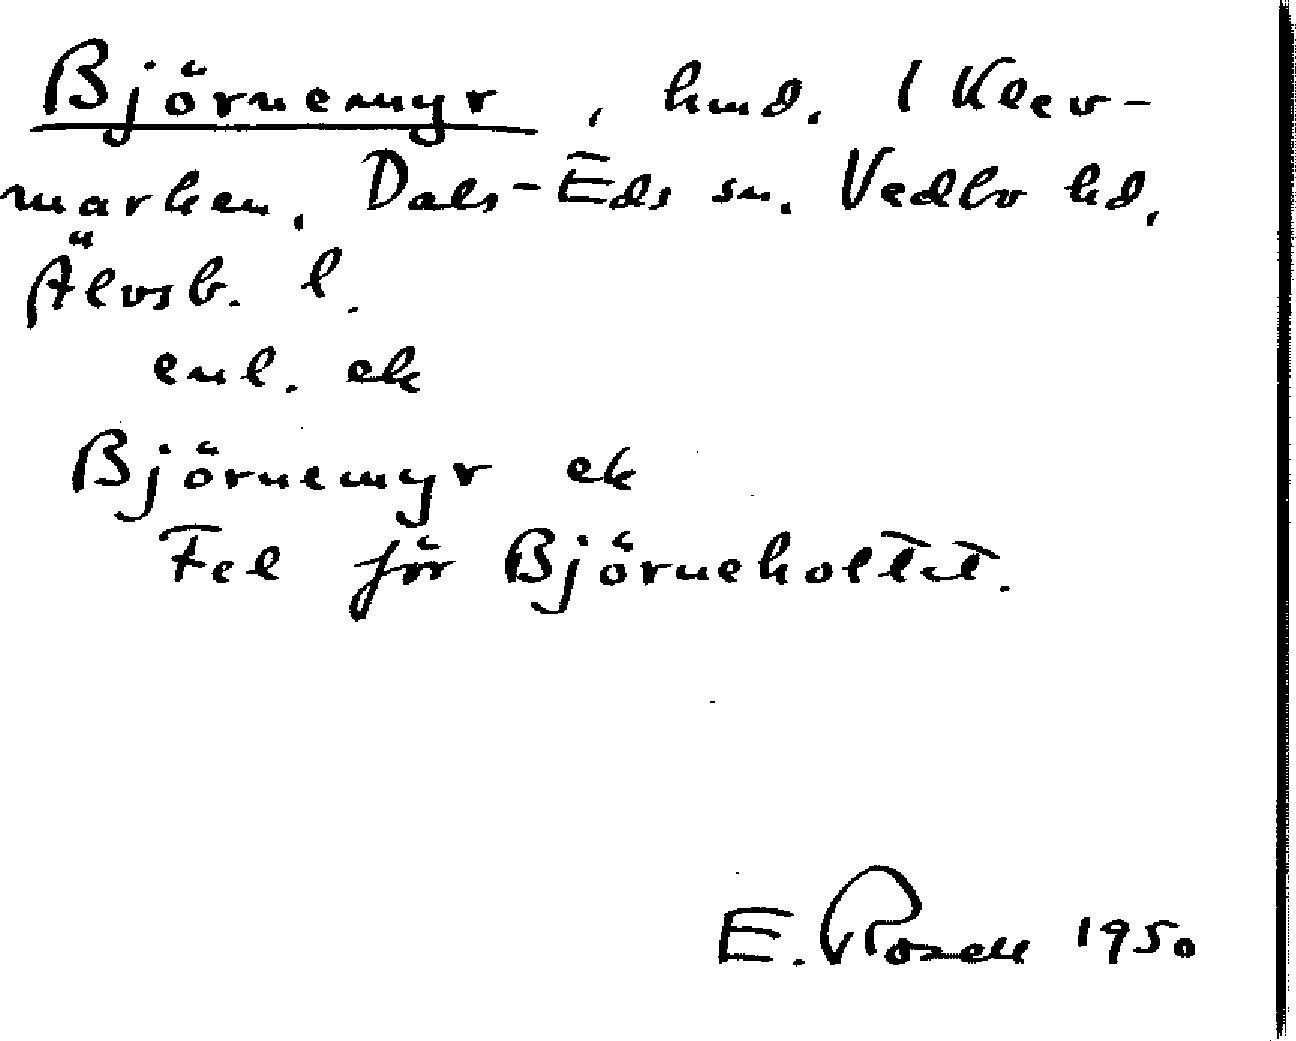 Björnemyr, hmd. 1 Klev-
marken, Dals-Eds sn. Vedbo hd,
Älvsb. l.
enl. ek
Björnemyr ek
Fel för Björneholtet.
E. Rosell 1950